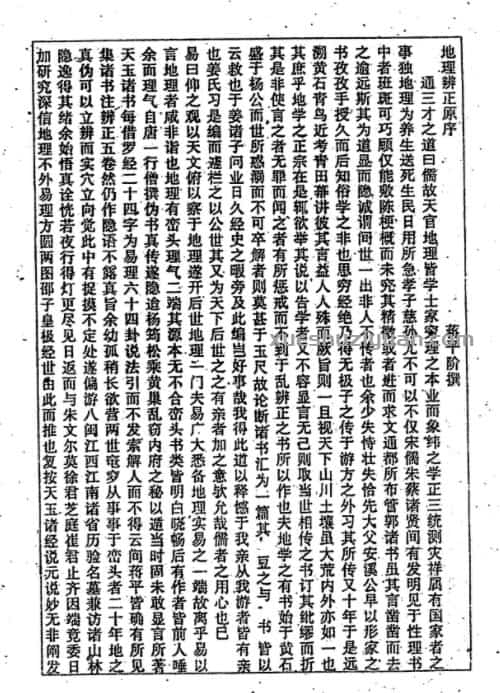 地理辨正原序
蒋平阶撰
通三才之道曰儒故天官地理皆学士家穷理之本业而象纬之学正三统测灾祥属有国家者之
事独地理为养生送死生民日用所急孝子慈孙尤不可以不仅宋儒朱蔡诸贤间有发明见于性理书
中者班班可巧顾仅能敷陈梗概而未究其精微或者进而求文通都所布管郭诸书虽其言凿凿而去
之逾远斯其为道显而隐诚谓间世一出非人不传者也余少失恃壮失怙先大父安溪公早以形家之
书孜孜手授久而后知俗学之非也思穷经绝乃得无极子之传于游方之外习其所传又十年于是远
溯黄石青乌近考青田幕讲彼其言益人人殊而厥旨则一且视天下山川土壤虽大荒内外亦如一也
其庶乎地学之正宗在是辄欲举其说以告学者又不容显言无已则取当世相传之书订其纰缪而折
其是非使言之者无罪而闻之者有所惩戒而不到于乱辨正之书所以作也夫地学之有书始于黄石
盛于杨公而世所惑溺而不可卒解者则莫甚于玉尺故论断诸书汇为一篇其 豆之与 书皆以
云救也于姜诸子问业日久经史之暇旁及此编岂好事哉我得此道以释憾于我亲从我游者皆有亲
也姜氏习是编而遽栏之以公世其又为天下后世之之有亲者加之意欤允哉儒者之用心也已
易曰仰之观以天文俯以察于地理遂开后世地理二门夫易广大悉备地理实易之一端故离乎易以
言地理者咸非诣也地理有峦头理气二端其源本无不合峦头书类皆明白晓畅后有作者皆前人唾
余而理气自唐一行僧撰伪书真传遂隐逾杨筠松乘黄巢乱窃内府之秘以遁当时固未敢显言所著
天玉诸书每借罗经二十四字为易理六十四卦说法引而不发索解人而不得云间蒋平皆确有所见
集诸书注辨正五卷然仍作隐语不露真旨余幼孤稍长欲营两世窀穸从事事于峦头者二十年地之
真伪可以立辨而实穴立向觉此中有捉摸不定处遂偏游八闽江西江南诸省历验名墓兼访诸山林
隐逸得其绪余始悟真诠恍若夜行得灯更尽见日返而与朱文尔英徐君芝庭崔君止齐因端竟委日
加研究深信地理不外易理方圆两图邵子皇极经世由此而推也复按天玉诸经说元说妙无非阐发